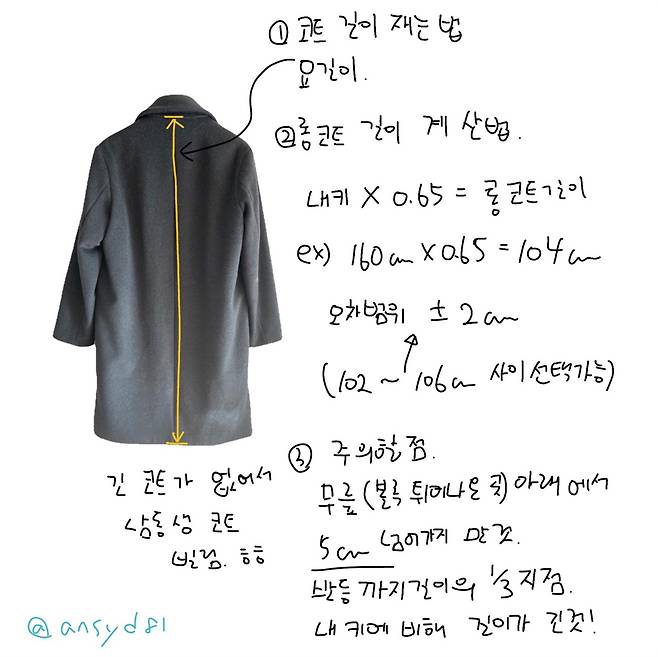 ① 코트 길이 재는 법
요길이.
② 롱코트 길이 계산법.
내키 X 0.65 = 롱코트길이
ex) 160cm X 0.65 = 104cm
오차범위 ± 2cm
(102 ~ 106cm 사이선택가능)
긴 코트가 없어서
남동생 코트
빌림. ㅎㅎ
③ 주의할점.
무릎 (볼록 튀어나온 곳) 아래에서
5cm 넘어가지 말것.
발등까지길이의 1/3지점.
내 키에 비해 길이가 긴것!
@ansyd81